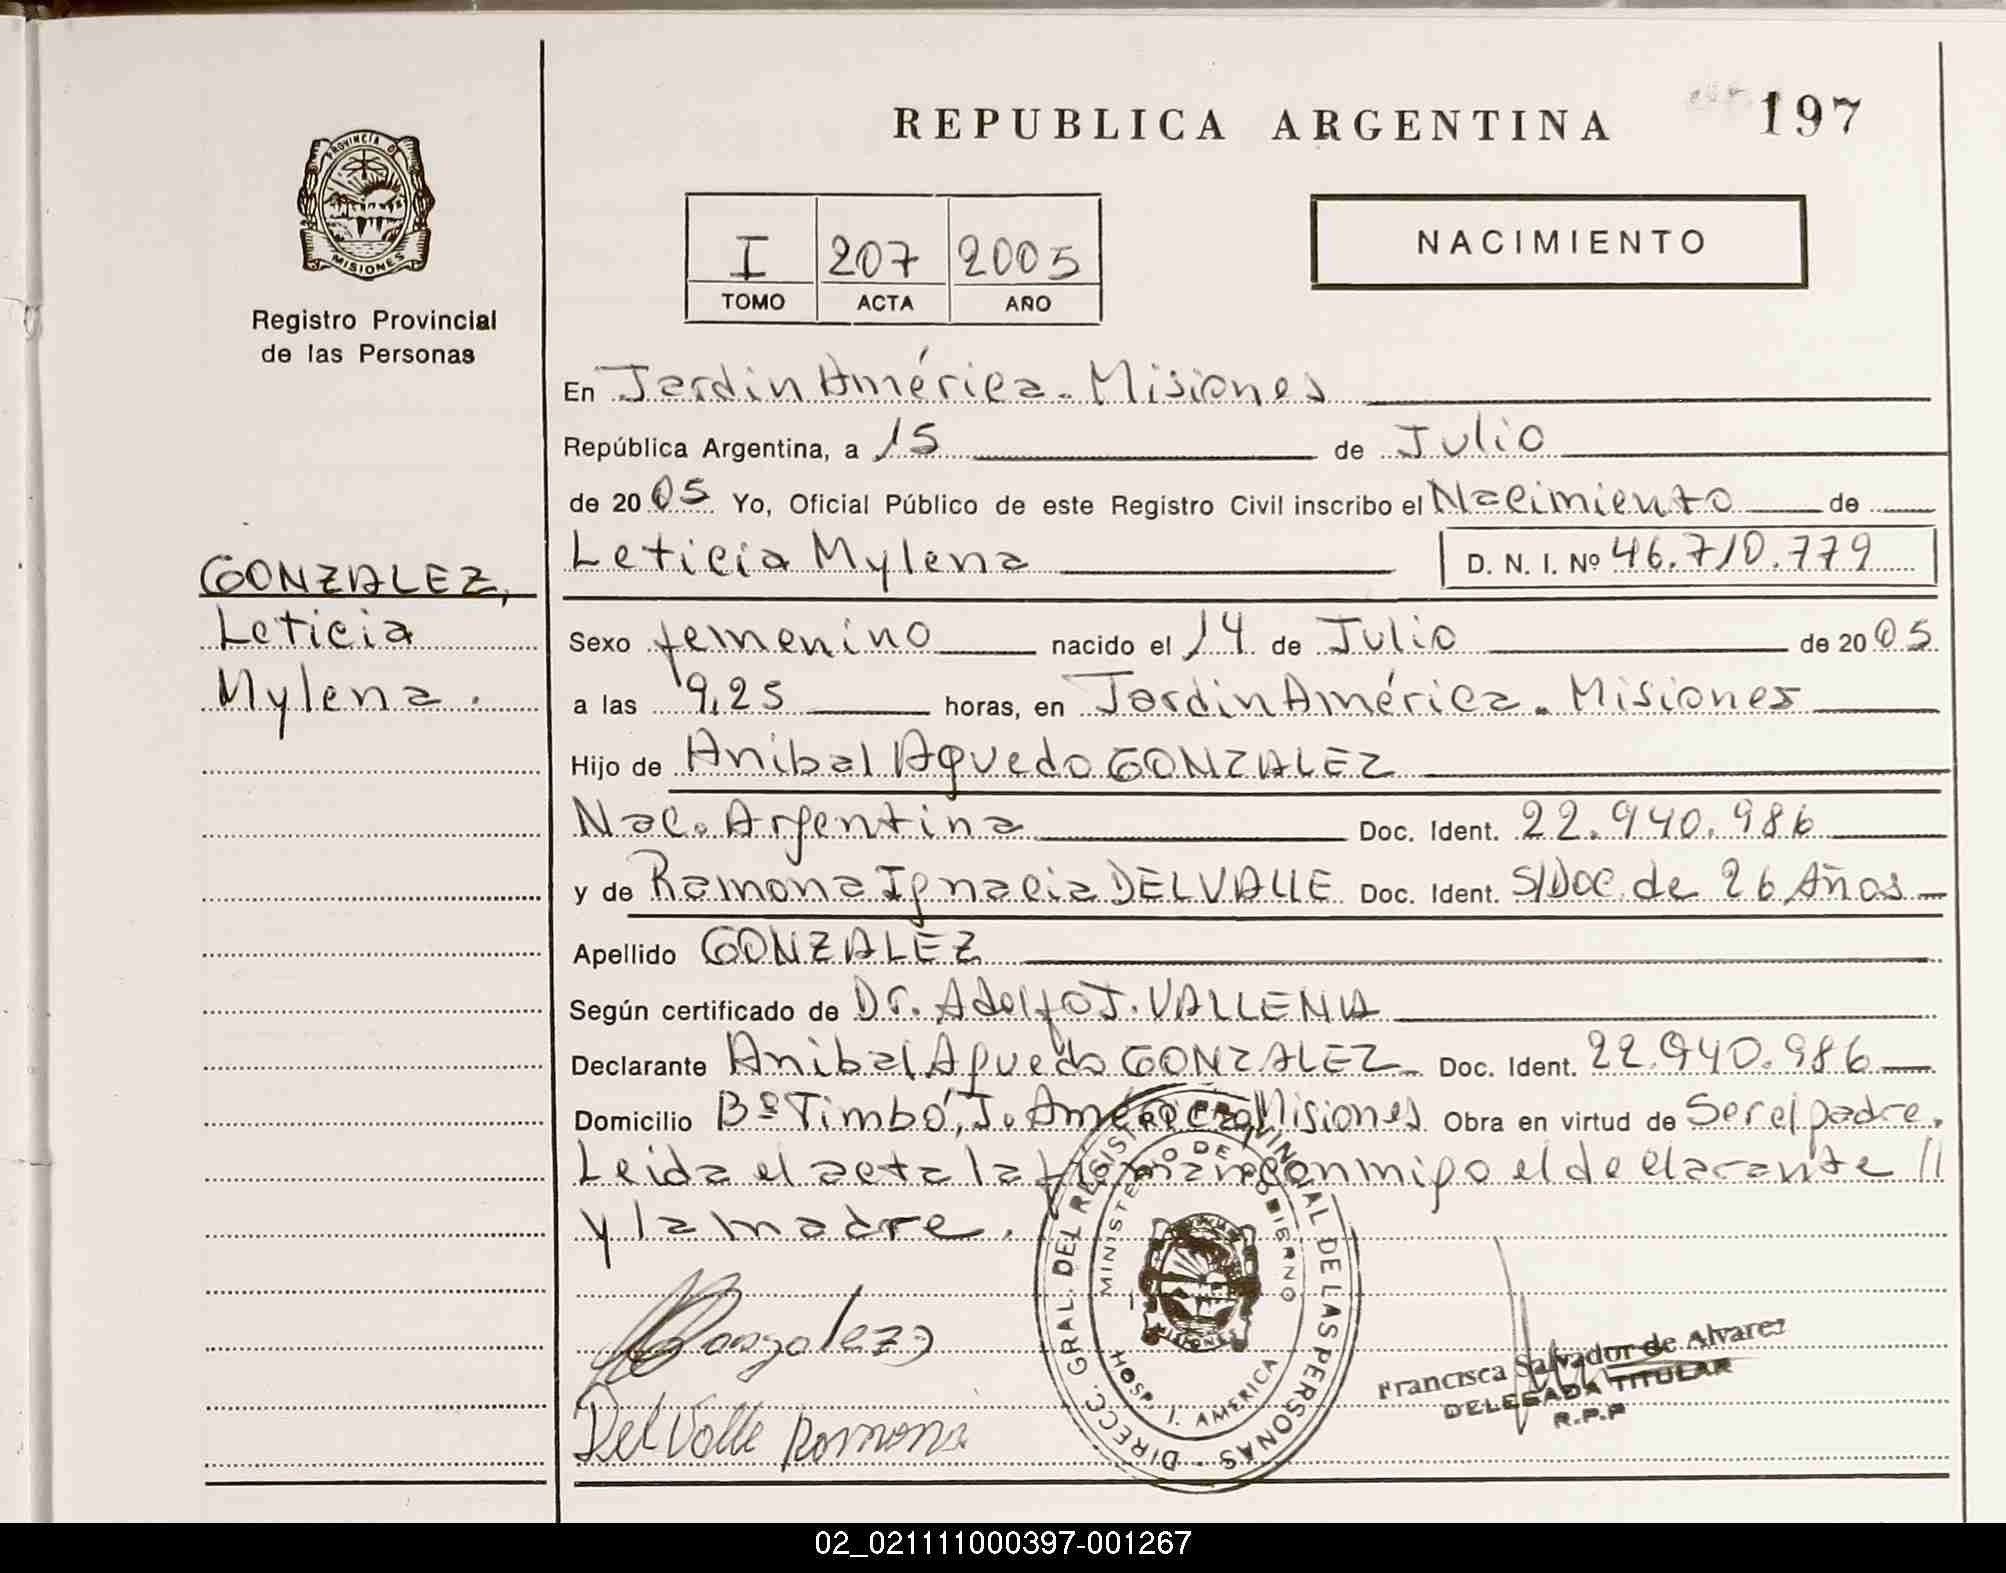 REPUBLICA ARGENTINA
197
PROVINCIA D
MISIONES
Registro Provincial
de las Personas
I 207 2005
TOMO ACTA AÑO
NACIMIENTO
En Jardin América. Misiones
República Argentina, a 15 de Julio
de 2005 Yo, Oficial Público de este Registro Civil inscribo el Nacimiento de
Leticia Mylena D. N. I. Nº 46.710.779
GONZALEZ,
Leticia
Mylena.
Sexo femenino nacido el 14 de Julio de 2005
a las 9,25 horas, en Jardin América. Misiones
Hijo de Anibal Aguedo GONZALEZ
Nac. Argentina Doc. Ident. 22.940.986
y de Ramona Ignacia DEL VALLE Doc. Ident. S/Doc. de 26 Años
Apellido GONZALEZ
Según certificado de Dr. Adolfo J. VALLENIA
Declarante Anibal Aguedo GONZALEZ Doc. Ident. 22.940.986
Domicilio Bº Timbó, J. América, Misiones Obra en virtud de Ser el padre.
Leida el acta la firman conmigo el declarante //
y la madre.
DIRECC. GRAL. DEL REGISTRO PROVINCIAL DE LAS PERSONAS
MINISTERIO DE GOBIERNO
MISIONES
HOSP. J. AMERICA
Gonzalez
Del Valle Ramona
Francisca Salvador de Alvarez
DELEGADA TITULAR
R.P.P
02_021111000397-001267